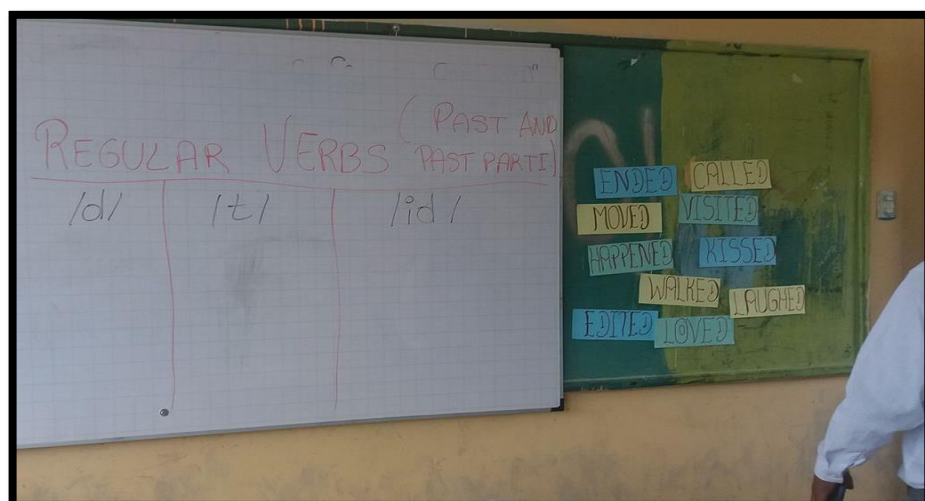 REGULAR VERBS (PAST AND
PAST PARTI)
/d/ /t/ /id/
ENDED CALLED
MOVED VISITED
HAPPENED KISSED
WALKED LAUGHED
EDITED LOVED